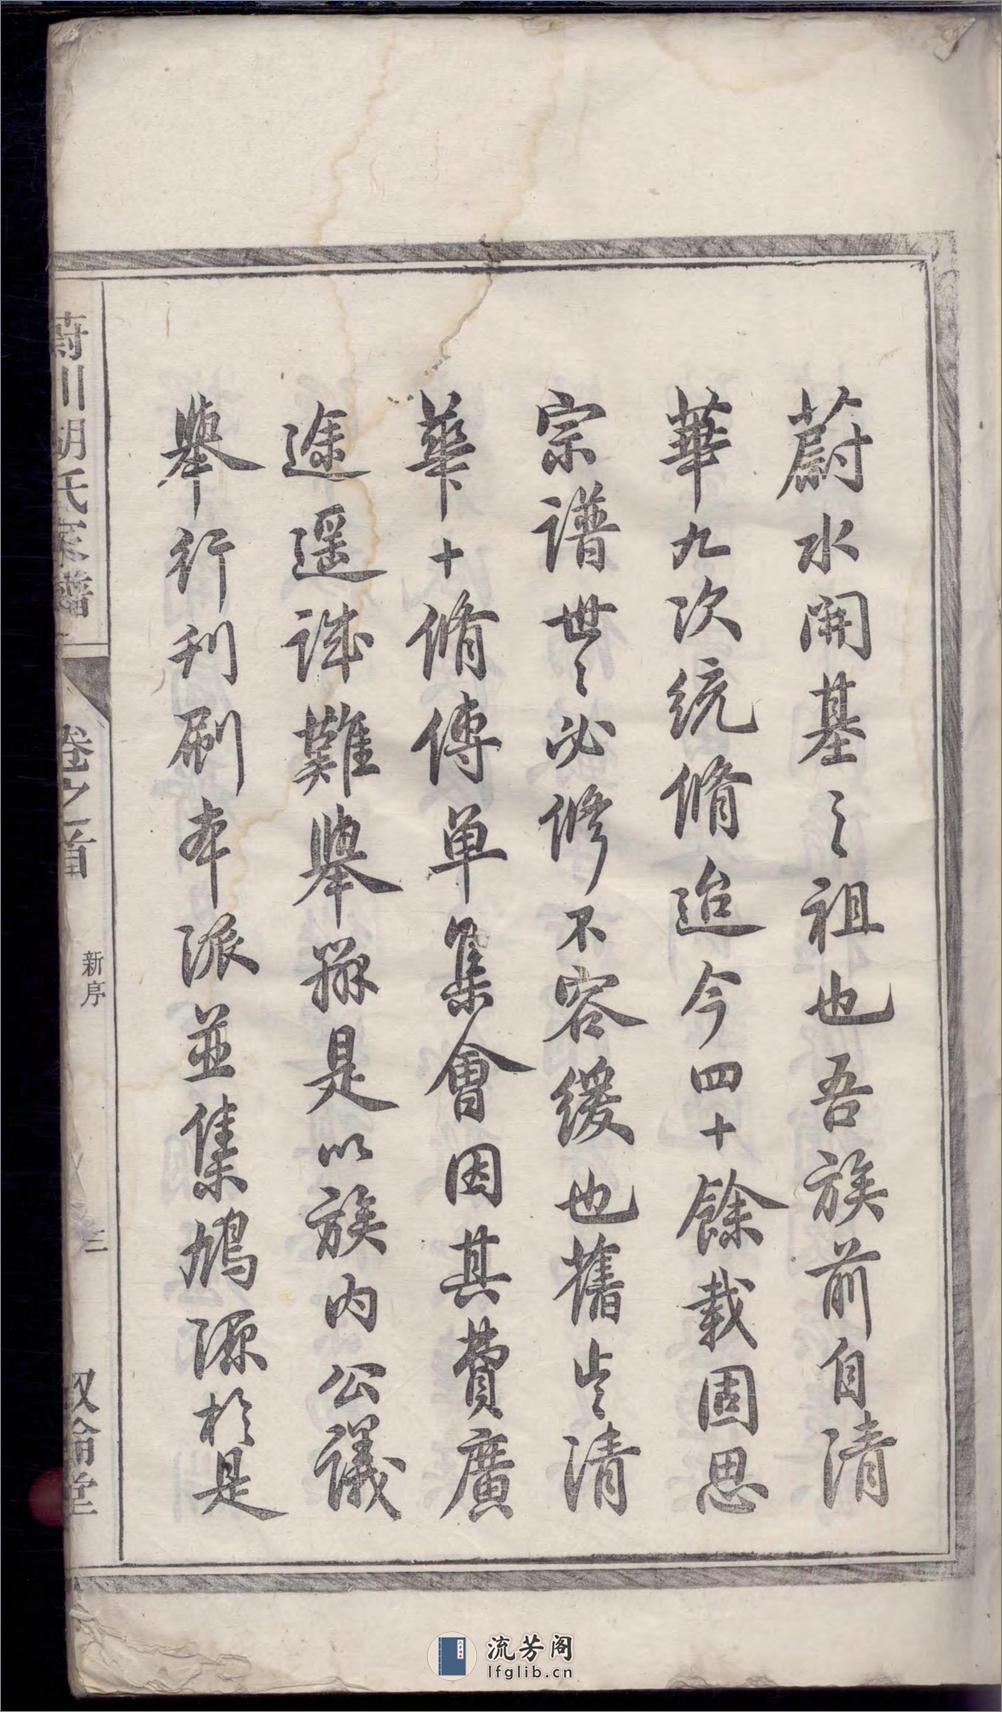 蔚水開基之祖也吾族前自清
華九次統脩迨今四十餘載固思
宗譜世々必修不容緩也舊歲清
華十脩傳单集會因其費廣
途遥誠難舉辦是以族内公議
舉行刊刷本派並集鳩源於是
蔚川胡氏家譜
卷之首
新序
三
叙倫堂
流芳阁
lfglib.cn